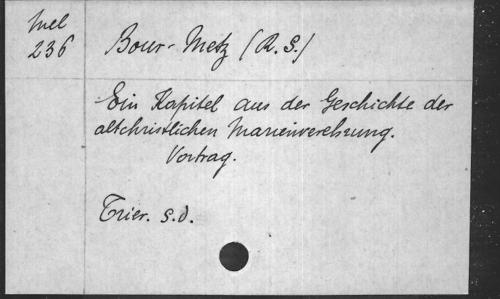 Mel
236
Bour-Metz (R. S.)
Ein Kapitel aus der Geschichte der
altchristlichen Marienverehrung.
Vortrag.
Trier. s.d.